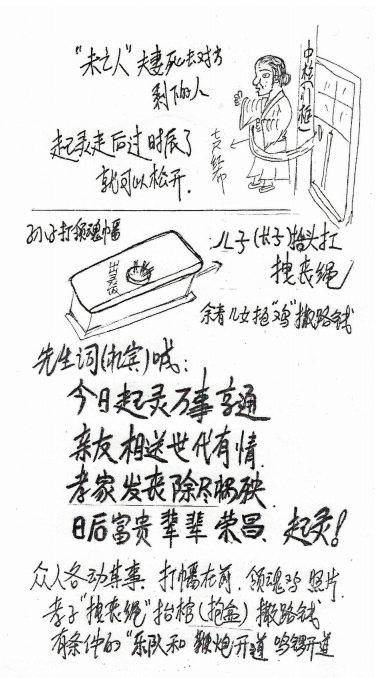 "未亡人"夫妻死去对方
剩下的人
起灵走后过时辰了
就可以松开.
七尺红布
中柱(门框)
孙子打领魂幡
出灵饭
儿子(长子)抬头扛
拽丧绳
余者儿女抱"鸡"撒路钱
先生词(礼宾)喊:
今日起灵万事亨通
亲友相送世代有情.
孝家发丧除尽祸殃
日后富贵辈辈荣昌. 起灵!
众人各动其事、打幡在前.领魂鸡 照片.
孝子"拽丧绳"抬棺(抱盆)撒路钱
有条件的"乐队和 鞭炮开道 鸣锣开道